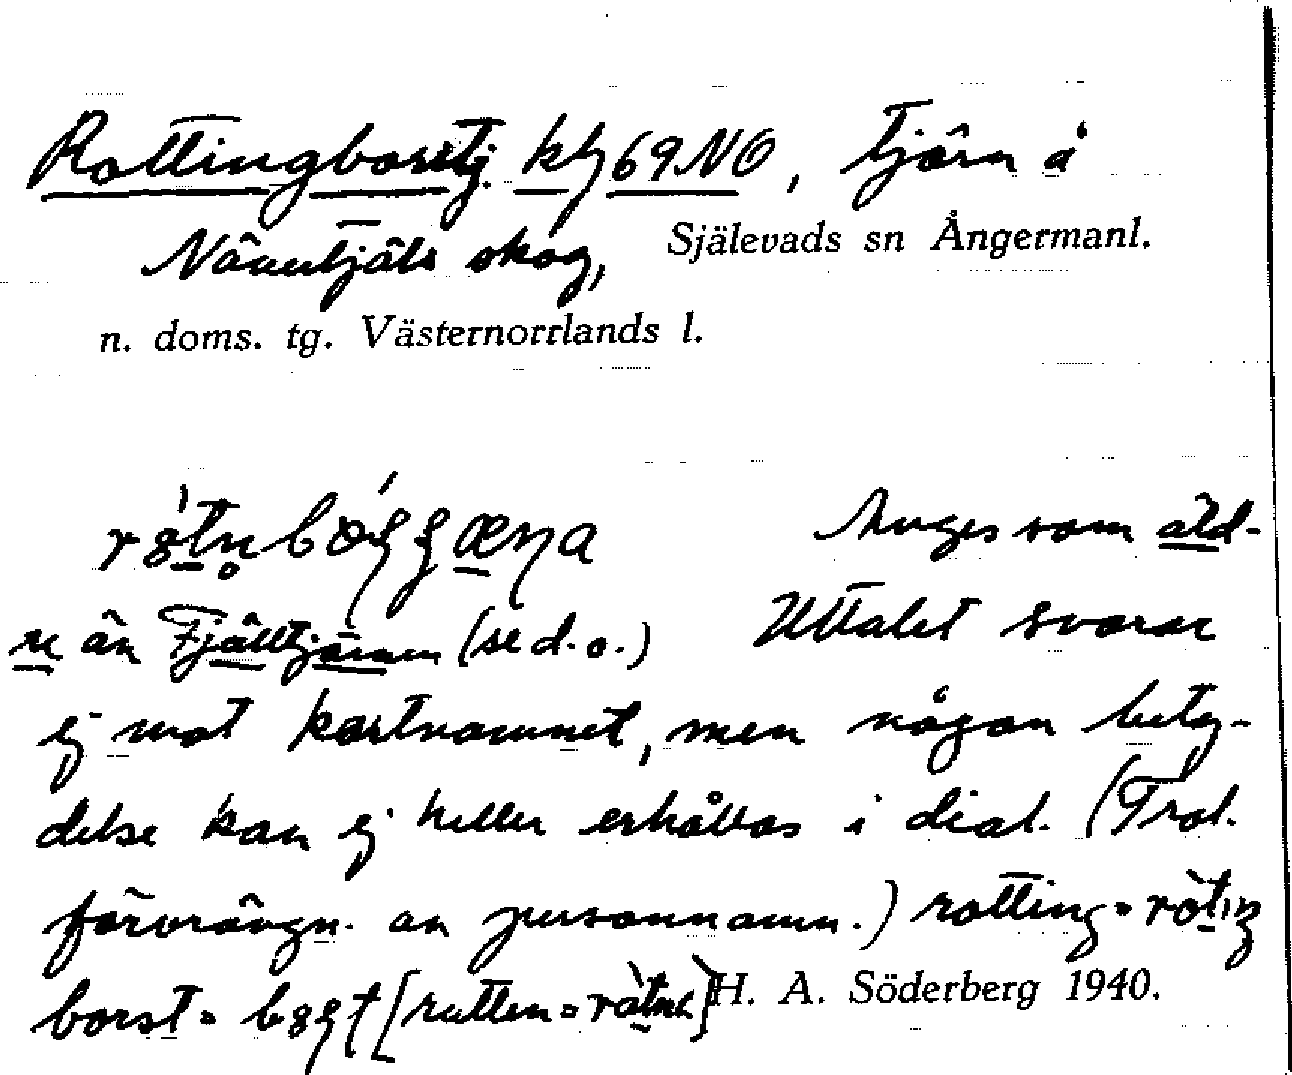 Rottingborstj. kbl 69 NO, Tjärn å
Nävertjäls skog, Själevads sn Ångermanl.
n. doms. tg. Västernorrlands l.
Anges som äld-
re än Fjälltjärnen (se d. o.) Uttalet svarar
ej mot kartnamnet, men någon bety-
delse kan ej heller erhållas i dial. (Trol.
förvrängn. av personnamn.) rotting =
borst = [rutten = ] H. A. Söderberg 1940.